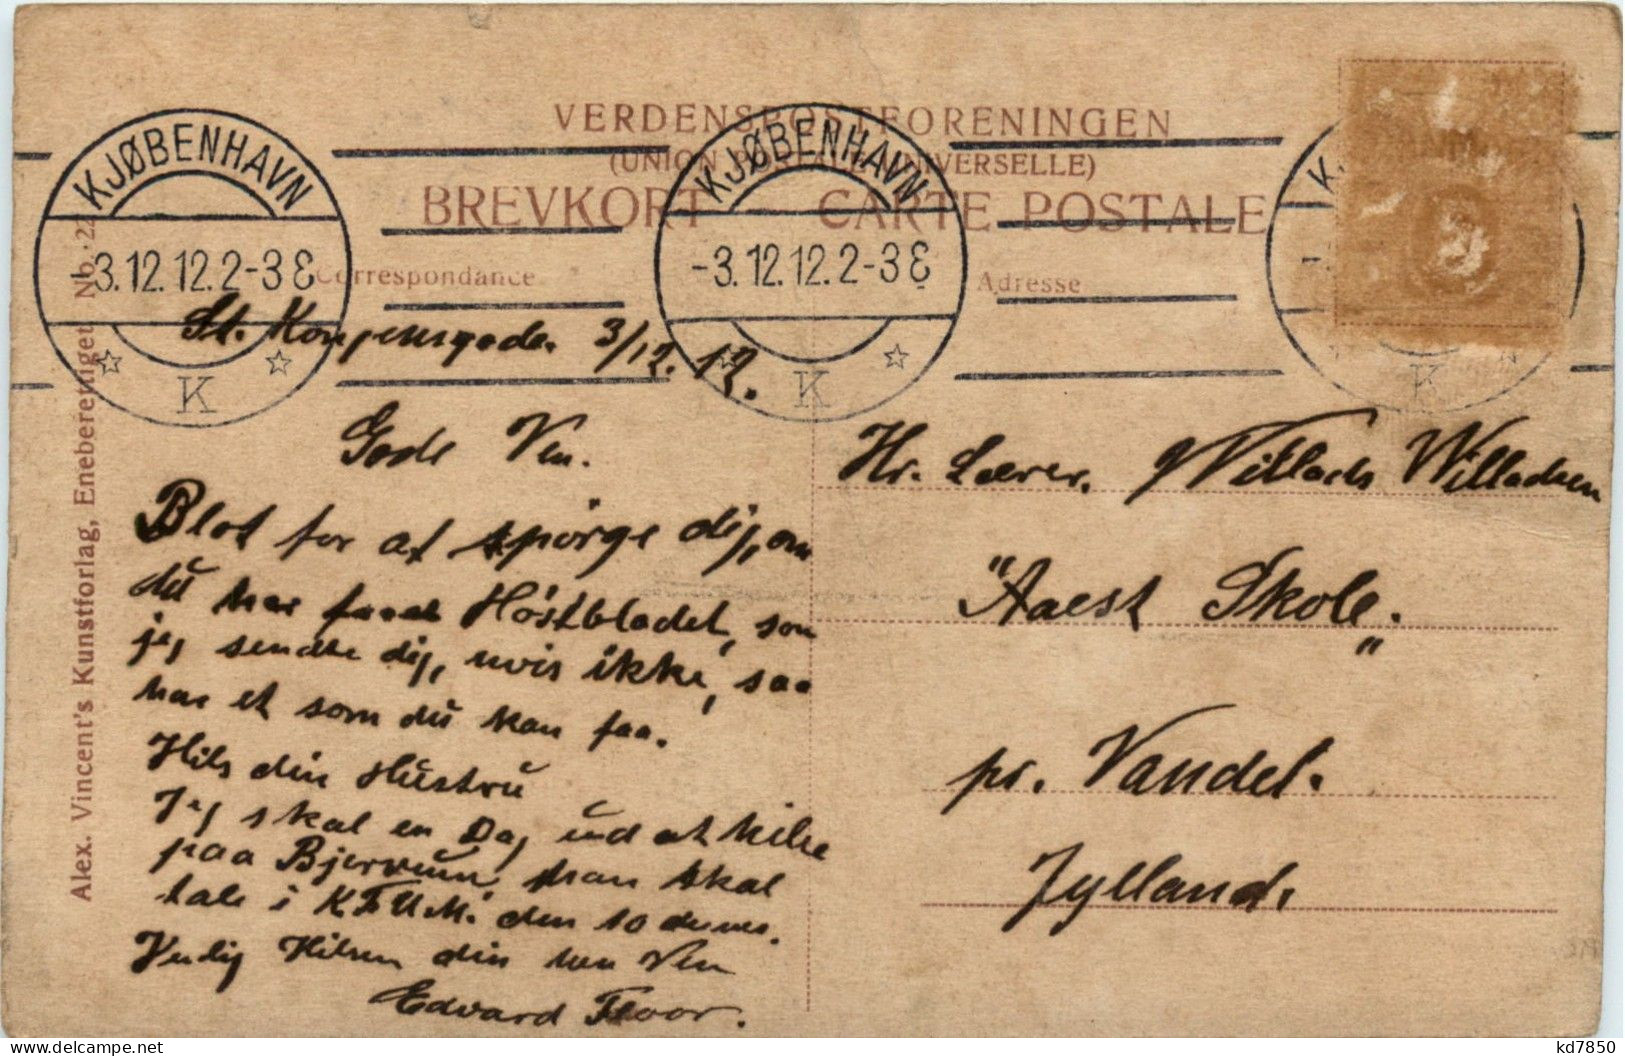 VERDENSPOSTFORENINGEN
(UNION POSTALE UNIVERSELLE)
BREVKORT CARTE POSTALE
Correspondance
Adresse
KJØBENHAVN
-3.12.12.2-3 E
K
KJØBENHAVN
-3.12.12.2-3 E
K
K
Alex. Vincent's Kunstforlag, Eneberettiget. Nb. 22
St. Kongensgade. 3/12. 12.
Gode Ven.
Blot for at spørge dig, om
du har faaet Høstbladet, som
jeg sendte dig, hvis ikke, saa
har et som du kan faa.
Hils din Hustru
Jeg skal en Dag ud at hilse
paa Bjerrum, han skal
tale i K.F.U.M. den 10 dennes.
Venlig Hilsen din ven
Edvard Floor.
Hr. Lærer. Willads Willadsen
"Aaest Skole."
pr. Vandel.
Jylland.
kd7850